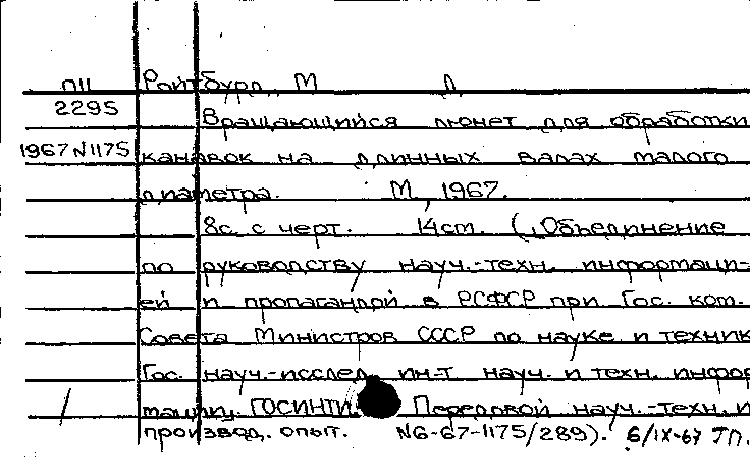 ПII Ройтбурд, М Д
2295 Вращающийся люнет для обработки
1967 N1175 канавок на длинных валах малого
диаметра. М., 1967.
8с. с черт. 14см. (Объединение
по руководству науч.-техн. информаци-
ей и пропагандой в РСФСР при Гос. ком.
Совета Министров СССР по науке и техник
Гос. науч.-исслед. ин-т науч. и техн. инфор
мации. ГОСИНТИ. Передовой науч.-техн. и
производ. опыт. N6-67-1175/289). 6/IX-67 ТП.